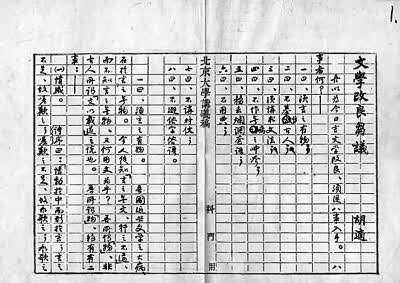 1.
文學改良芻議
胡適
以為今日言文學改良、須從八事入手。八
事者何?
一曰、須言之有物。
二曰、不摹仿古人。
三曰、須講求文法。
四曰、不作無病之呻吟。
五曰、務去爛調套語。
六曰、不用典。
北京大學講義稿 科 門 用
七曰、不講對仗。
八曰、不避俗字俗語。
一曰、須言之有物。 吾國近世文學之大病
在於言之無物。 今人徒知言之無文、行之不遠、
而不知言之無物、又何用文為乎? 吾所謂物、非
古人所謂文以載道之說也。 吾所謂物、約有二
事:
(一)情感。 詩序曰:情動於中而形於言。言之
不足、故嗟歎之。嗟歎之不足、故永歌之。永歌之